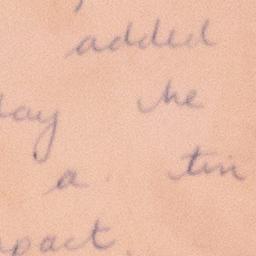 added
day the
a tin
pact